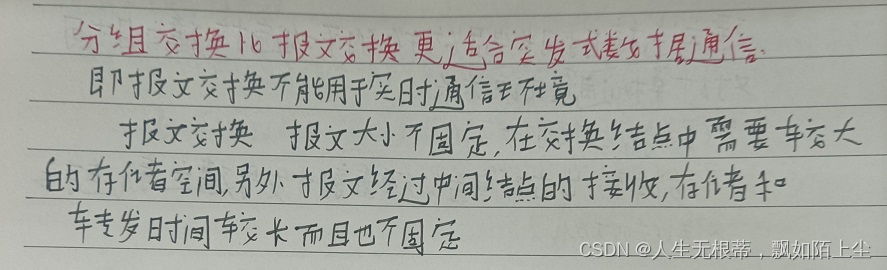 分组交换比报文交换更适合突发式数据通信.
即报文交换不能用于实时通信环境
报文交换 报文大小不固定,在交换结点中需要较大
的存储空间,另外报文经过中间结点的接收,存储和
转发时间较长而且也不固定
CSDN @人生无根蒂，飘如陌上尘